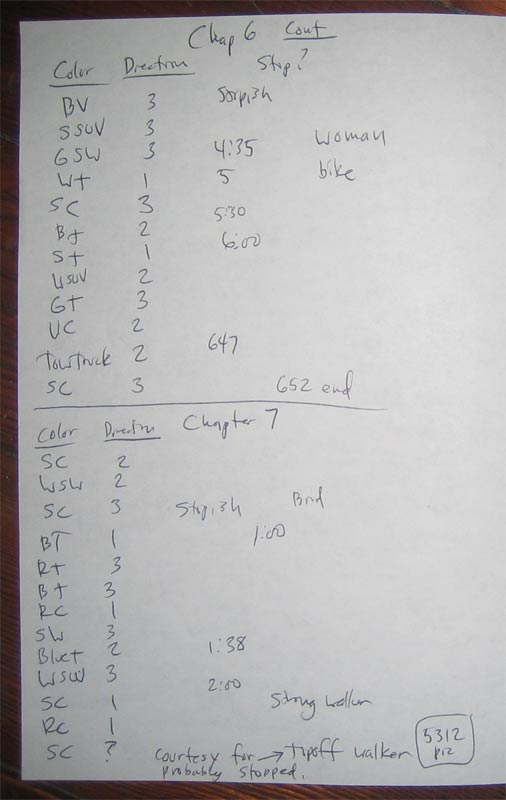 Chap 6 Cont
Color Direction Stop?
BV 3 Stopish
SSUV 3
GSW 3 4:35 woman
WT 1 5 bike
SC 3 5:30
Bt 2 6:00
St 1
WSUV 2
GT 3
UC 2
Towtruck 2 647
SC 3 652 end
Color Direction Chapter 7
SC 2
WSW 2
SC 3 Stopish Bird
BT 1 1:00
Rt 3
Bt 3
RC 1
SW 3
Bluet 2 1:38
WSW 3 2:00
SC 1 Strong walker
RC 1
SC ? courtesy for → tipoff walker 5312
probably stopped.